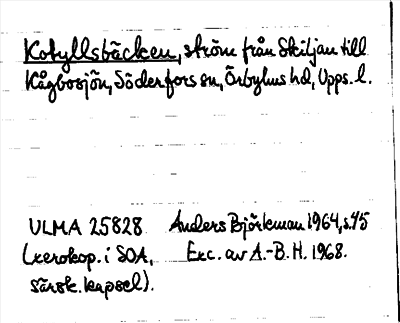 Kotyllsbäcken, ström från Skiljan till
Kågbosjön, Söderfors sn, Örbyhus hd, Upps. l.
ULMA 25828 Anders Björkman 1964, s. 45
(xerokop. i SOA, Exc. av A.-B. H. 1968.
särsk. kapsel).